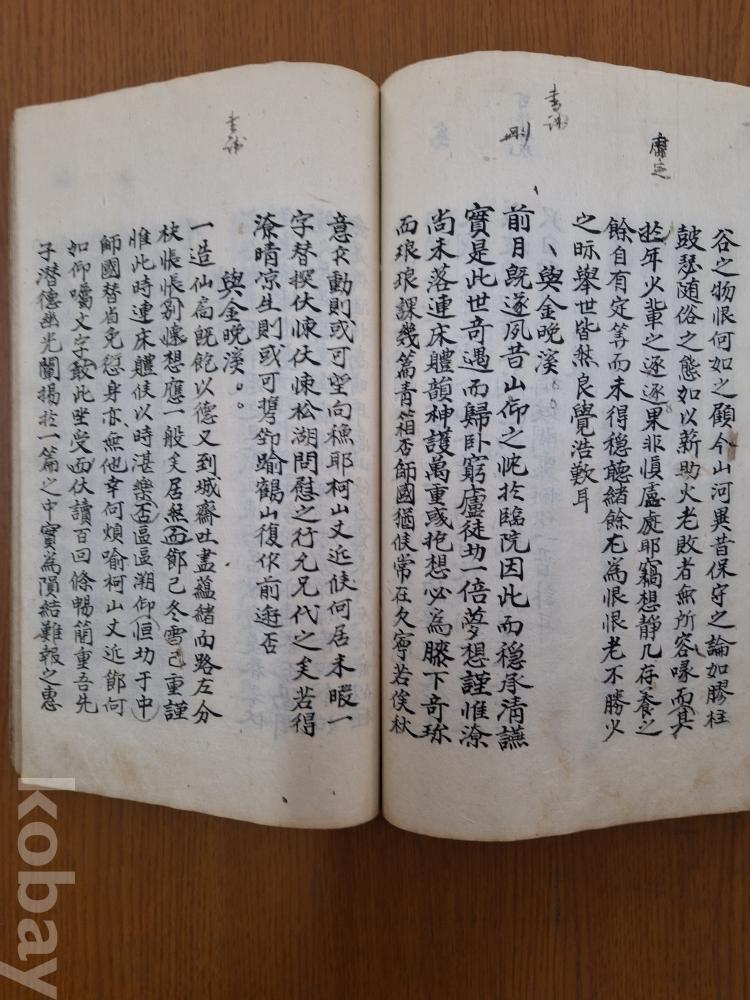 谷之物恨何如之顧今山河異昔保守之論如膠柱
皷瑟随俗之態如以薪助火老敗者無所容喙而其
於年火輩之逐逐果非愼處處耶竊想靜几存養之
餘自有定筭而未得穩聽緒餘尤爲恨恨老不勝火
之眎舉世皆然良覺浩歎耳
與金晩溪
前月旣遂夙昔山仰之忱於臨院因此而穩承清讌
實是此世奇遇而歸卧窮廬徒切一倍夢想謹惟潦
尚未落連床軆韻神護萬重彧抱想必爲膝下奇珎
而琅琅課幾篇青箱否師國猶侯常在欠寧若俟秋
意欲動則或可望向穐耶柯山丈近候何居未暇一
字替探伏悚伏悚松湖問慰之行允兄代之矣若得
潦晴凉生則或可携卽踰鶴山復作前逰否
與金晩溪
一造仙扃旣飽以德又到城齋吐盡蘊緒而路左分
袂悵悵別懷想應一般矣居然面節已冬雪已重謹
惟此時連床軆候以時湛樂否區區溯仰恒切于中
師國替省免愆身亦無他幸何煩喻柯山丈近節何
如仰囑文字敢此坐受而伏讀百回條暢簡重吾先
子潜德幽光闡揚於一篇之中實爲隕結難報之惠
肅定
書疏
刪
書疏
kobay